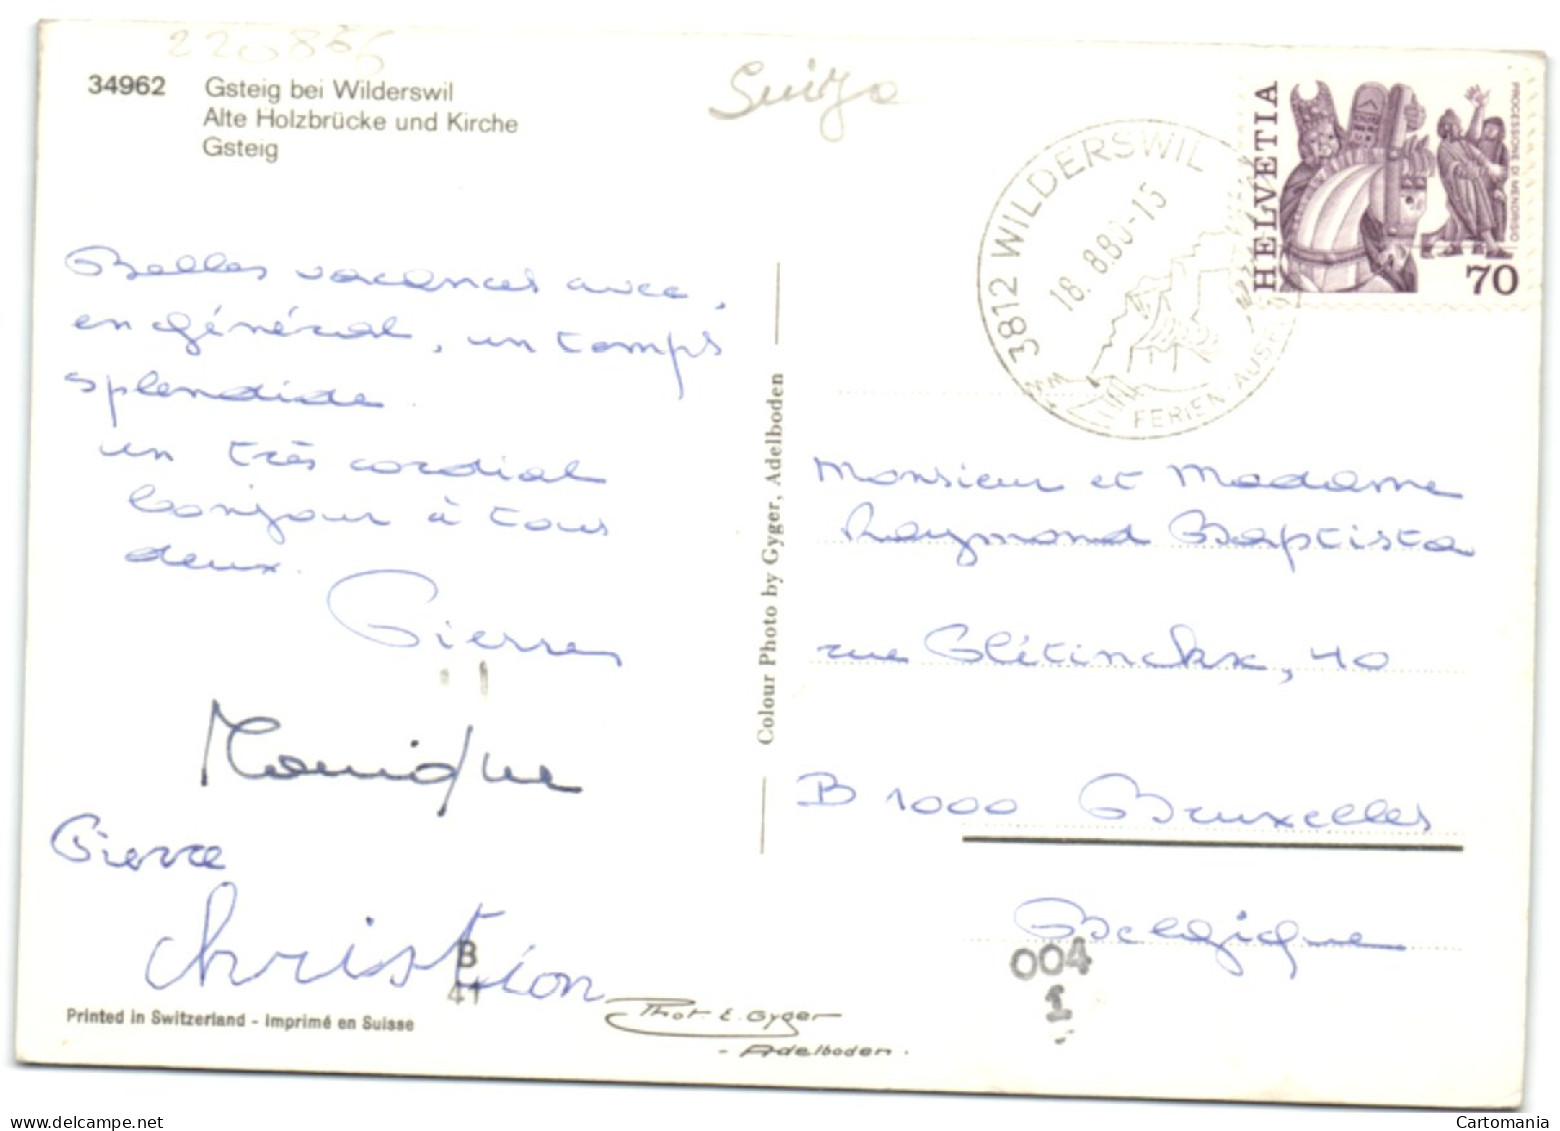 220855
34962 Gsteig bei Wilderswil
Alte Holzbrücke und Kirche
Gsteig
Suiza
3812 WILDERSWIL
18.8.80-15
FERIEN-
HELVETIA
PROCESSIONE DI MENDRISIO
70
Belles vacances avec,
en général, un temps
splendide.
un très cordial
bonjour à tous
deux.
Pierre
Monique
Pierre
Christian
B
41
Printed in Switzerland - Imprimé en Suisse
Phot. E. Gyger
- Adelboden.
Colour Photo by Gyger, Adelboden
Monsieur et Madame
Raymond Baptista
rue Glétinckx, 40
B 1000 Bruxelles
Belgique
004
1
Cartomania